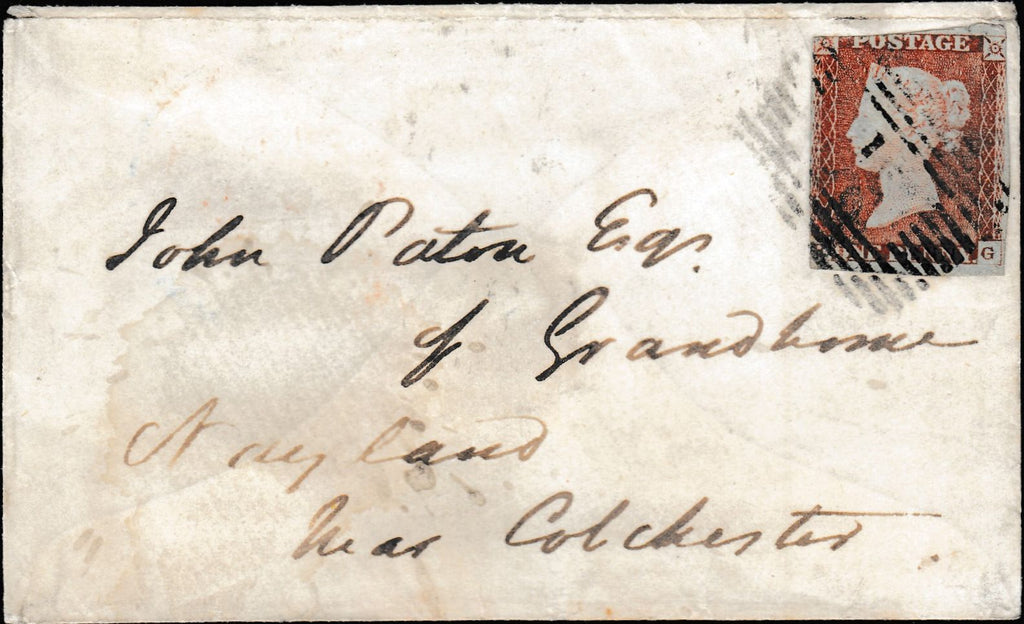 POSTAGE
G
John Paton Esqr.
of Grandhome
Nayland
Near Colchester.